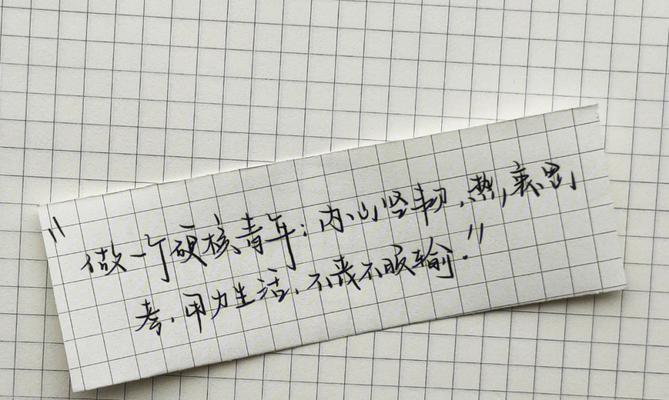 "做一个硬核青年：内心坚韧，热衷思
考，用力生活，不丧不服输."